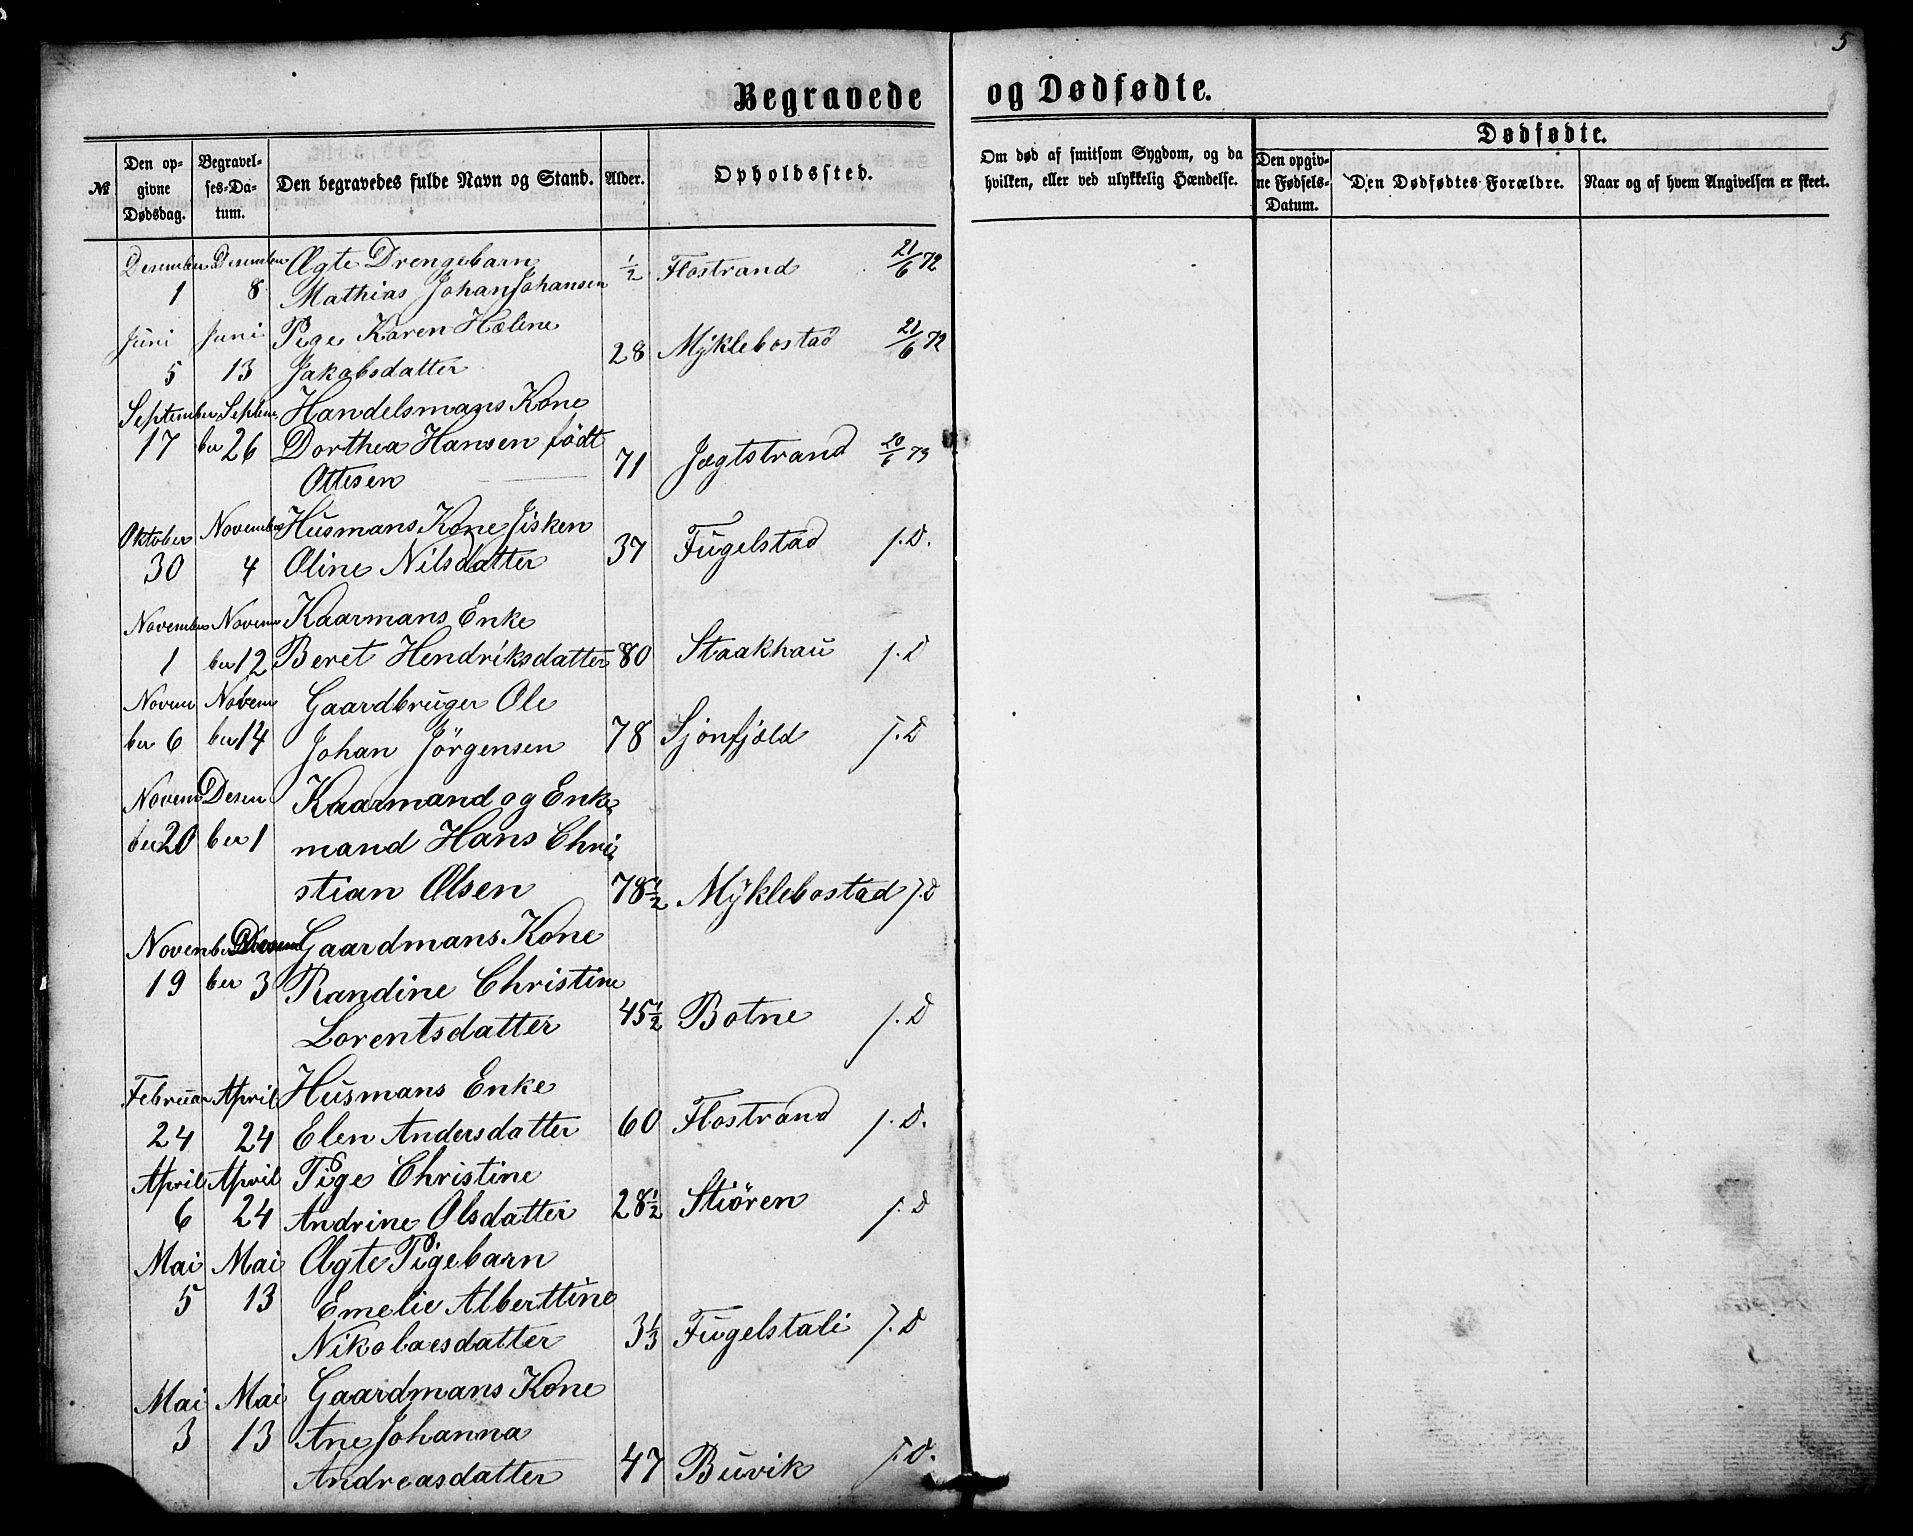 5
Begravede og Dødfødte.
№
Den opgivne Dødsdag.
Begravelses-Datum.
Den begravedes fulde Navn og Stand.
Alder.
Opholdssted.
Om død af smitsom Sygdom, og da hvilken, eller ved ulykkelig Hændelse.
Dødfødte.
Den opgivne Fødsels-Datum.
Den Dødfødtes Forældre.
Naar og af hvem Angivelsen er skeet.
Desember Desember Ægte Drengebarn ½ Flostrand 21/6 72
1 8 Mathias Johan Johansen
Juni Juni Pige Karen Hæline
5 13 Jakobsdatter 28 Myklebostad 21/6 72
September Septem Handelsmans Kone
17 ber 26 Dorthea Hansen født
Ottesen 71 Jægtstrand 20/6 73
Oktober November Husmans Kone Jisken
30 4 Oline Nilsdatter 37 Fugelstad s. D.
November Novem Kaarmans Enke
1 ber 12 Beret Hendriksdatter 80 Staakhau s. D
Novem Novem Gaardbruger Ole
ber 6 ber 14 Johan Jörgensen 78 Sjonfjæld s. D
Novem Desem Kaarmand og Enke
ber 20 ber 1 mand Hans Chri
stian Olsen 78½ Myklebostad s. D
November Desem Gaardmans Kone
19 ber 3 Randine Christine
Lorentsdatter 45½ Botne s. D
Februar April Husmans Enke
24 24 Elen Andersdatter 60 Flostrand s. D.
April April Pige Christine
6 24 Andrine Olsdatter 28½ Stiören s. D
Mai Mai Ægte Pigebarn
5 13 Emelie Alberttine
Nikolaesdatter 3⅓ Fugelstali s. D
Mai Mai Gaardmans Kone
3 13 Ane Johanna
Andreasdatter 47 Buvik s. D.